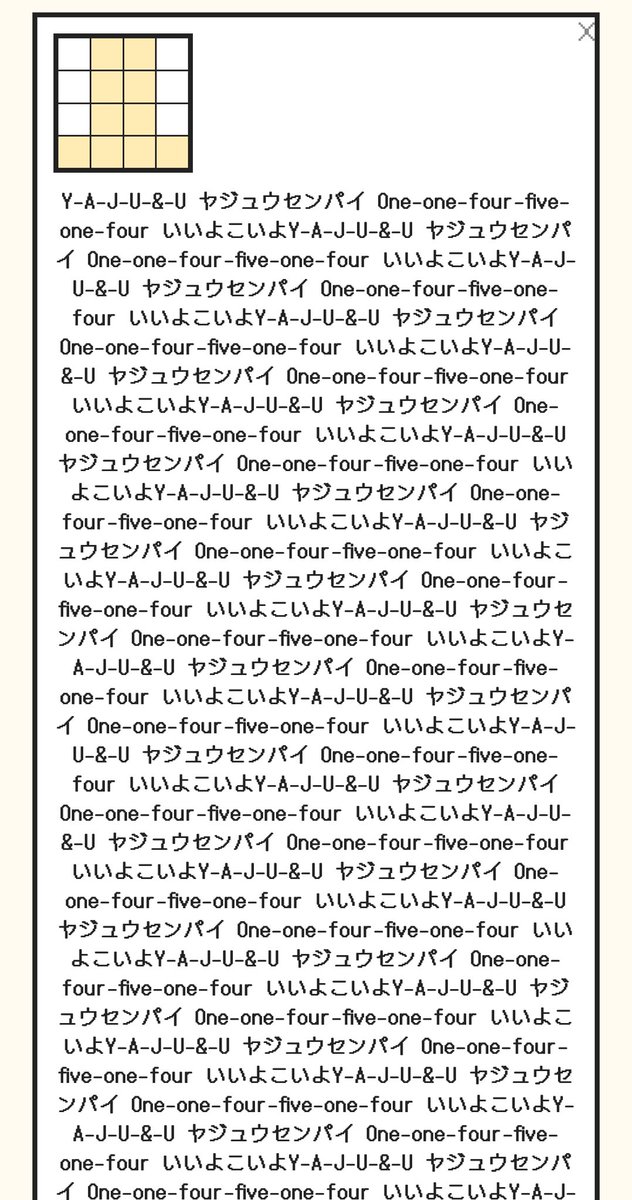 Y-A-J-U-&-U ヤジュウセンパイ One-one-four-five-
one-four いいよこいよY-A-J-U-&-U ヤジュウセンパ
イ One-one-four-five-one-four いいよこいよY-A-J-
U-&-U ヤジュウセンパイ One-one-four-five-one-
four いいよこいよY-A-J-U-&-U ヤジュウセンパイ
One-one-four-five-one-four いいよこいよY-A-J-U-
&-U ヤジュウセンパイ One-one-four-five-one-four
いいよこいよY-A-J-U-&-U ヤジュウセンパイ One-
one-four-five-one-four いいよこいよY-A-J-U-&-U
ヤジュウセンパイ One-one-four-five-one-four いい
よこいよY-A-J-U-&-U ヤジュウセンパイ One-one-
four-five-one-four いいよこいよY-A-J-U-&-U ヤジ
ュウセンパイ One-one-four-five-one-four いいよこ
いよY-A-J-U-&-U ヤジュウセンパイ One-one-four-
five-one-four いいよこいよY-A-J-U-&-U ヤジュウセ
ンパイ One-one-four-five-one-four いいよこいよY-
A-J-U-&-U ヤジュウセンパイ One-one-four-five-
one-four いいよこいよY-A-J-U-&-U ヤジュウセンパ
イ One-one-four-five-one-four いいよこいよY-A-J-
U-&-U ヤジュウセンパイ One-one-four-five-one-
four いいよこいよY-A-J-U-&-U ヤジュウセンパイ
One-one-four-five-one-four いいよこいよY-A-J-U-
&-U ヤジュウセンパイ One-one-four-five-one-four
いいよこいよY-A-J-U-&-U ヤジュウセンパイ One-
one-four-five-one-four いいよこいよY-A-J-U-&-U
ヤジュウセンパイ One-one-four-five-one-four いい
よこいよY-A-J-U-&-U ヤジュウセンパイ One-one-
four-five-one-four いいよこいよY-A-J-U-&-U ヤジ
ュウセンパイ One-one-four-five-one-four いいよこ
いよY-A-J-U-&-U ヤジュウセンパイ One-one-four-
five-one-four いいよこいよY-A-J-U-&-U ヤジュウセ
ンパイ One-one-four-five-one-four いいよこいよY-
A-J-U-&-U ヤジュウセンパイ One-one-four-five-
one-four いいよこいよY-A-J-U-&-U ヤジュウセンパ
イ One-one-four-five-one-four いいよこいよY-A-J-